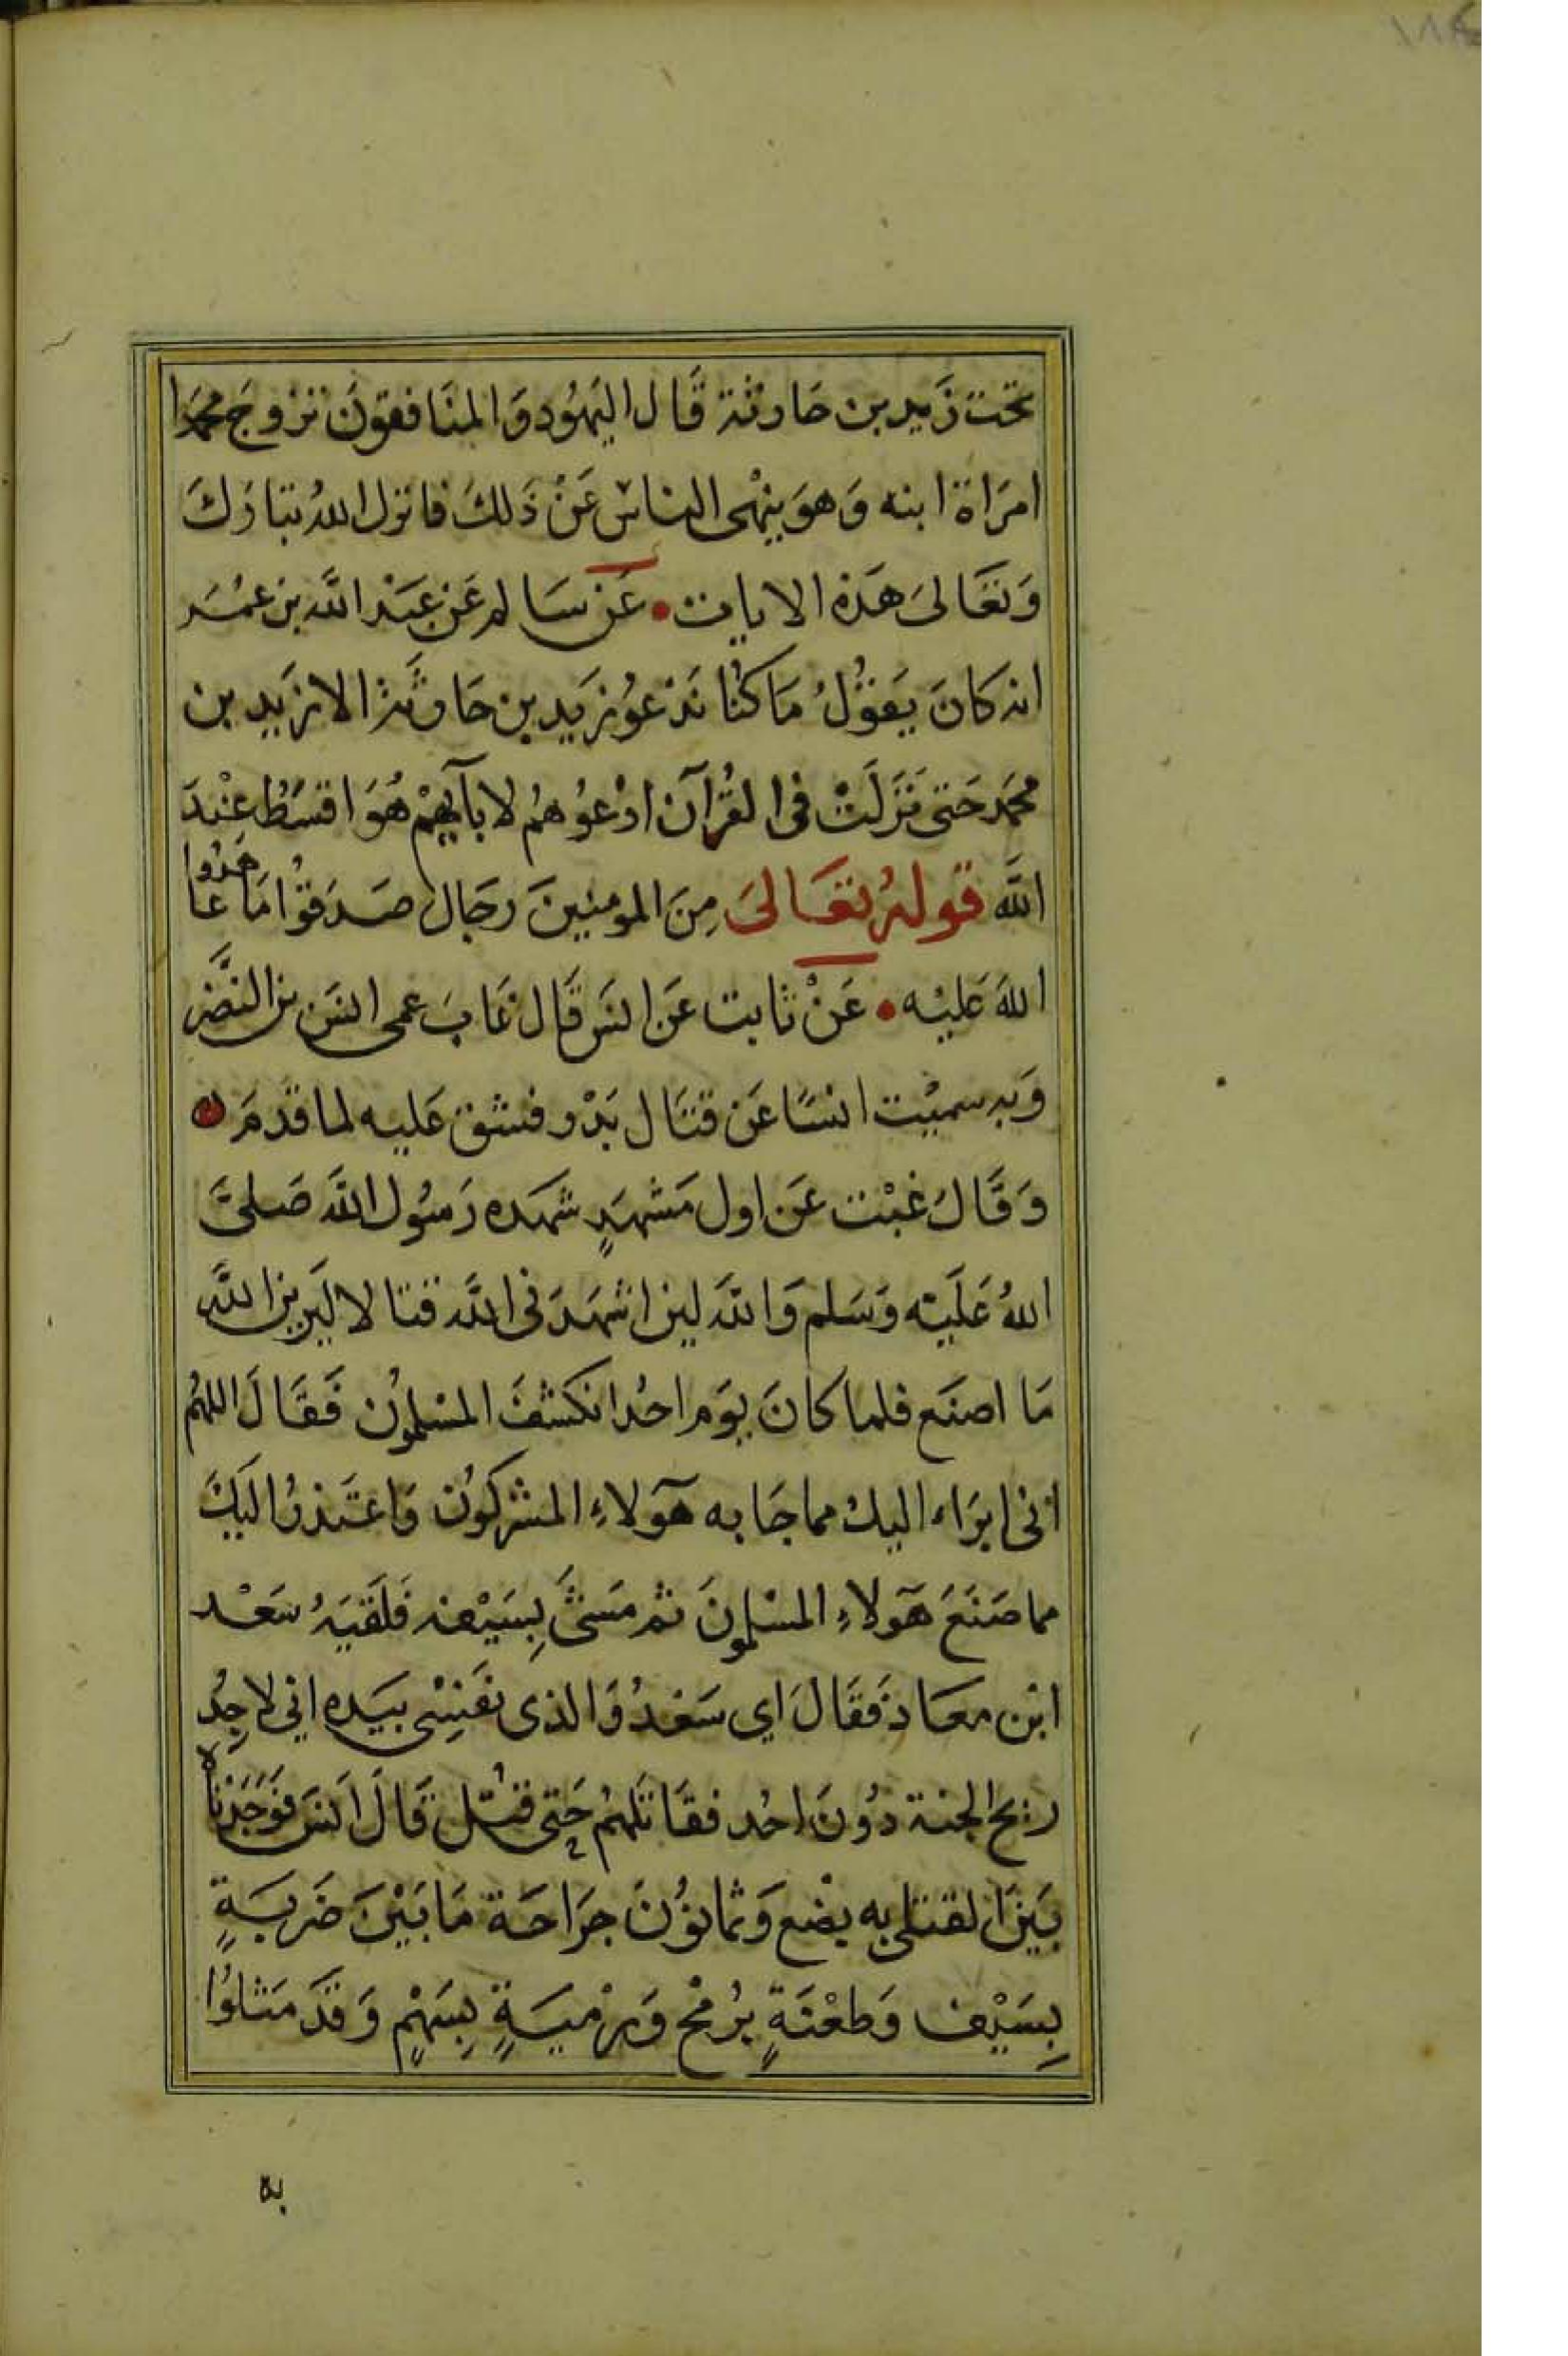 تحت زَيد بن حَارثة قَال اليَهُود وَالمنَافقونَ تزوجَ محمَدا
امرَاة ابنه وَهوَ ينهْى الناس عَنْ ذَلكَ فانزل اللهُ تبَارَك
وَتعَالىَ هَذه الايات • عَن سَالم عَن عبَد الله بن عمُر
انه كانَ يَقوُلُ مَا كنُا نَدْعوُ زيَد بن حَارثة الا زيَد بن
محمَد حَتى نَزَلَتْ فى القُرآن ادْعوُهمُ لابآئهِمْ هُوَ اقسَطُ عِنْدَ
الله قولهُ تعَالىَ مِنَ المومنِينَ رجَال صَدَقوُا مَا عَاهَدُوا
اللهَ عَليْه • عَنْ ثابت عَن انسَ قَال غَابَ عمى انسَ بن النضْر
وَبه سميْت انسًا عَن قتَال بَدْر فشق عَليه لما قدمَ
وَقَالَ غبْت عَن اول مَشهَدٍ شهَده رَسوُل الله صَلىَ
اللهُ عَلَيْه وَسَلم وَالله لين اشهَدَنى الله قتالا ليَرين الله
مَا اصنَع فلما كانَ يوَم احُد انكشفَ المسْلموُن فَقَالَ اللهمُ
انى ابرَاء اليكَ مما جَا به هَآولاءِ المشركوُن وَاعتَذرُ اليَكَ
مما صَنَعَ هَآولاءِ المسْلمونَ ثم مَشىَ بِسَيْفه فَلَقيَهُ سَعْد
ابْن معَاذ فَقَالَ اي سَعْدُ وَالذى نفَسِى بيَده اني لاجِدُ
ريح الجنة دوُنَ احُد فقَاتَلهمُ حَتى قتُل قَالَ انَسَ فوَجَدْنَاه
بيَن القتلى به بضْع وَثمانوُنَ جرَاحَة مَا بَيْنَ ضَربَةٍ
بِسَيْف وَطعْنَةٍ برُمْح وَرمْيَةٍ بِسَهْمٍ وَقَدَ مَثلوُا
به